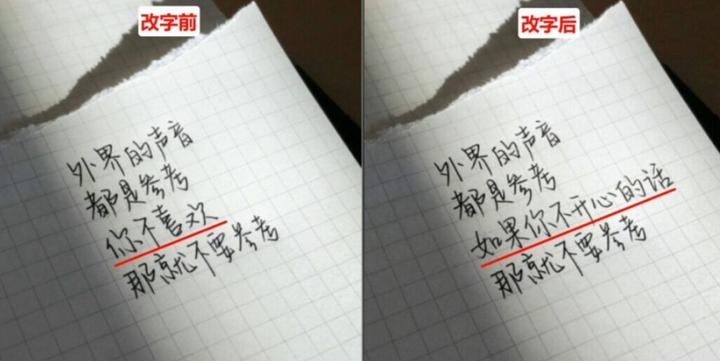 改字前
外界的声音
都是参考
你不喜欢
那就不要参考
改字后
外界的声音
都是参考
如果你不开心的话
那就不要参考